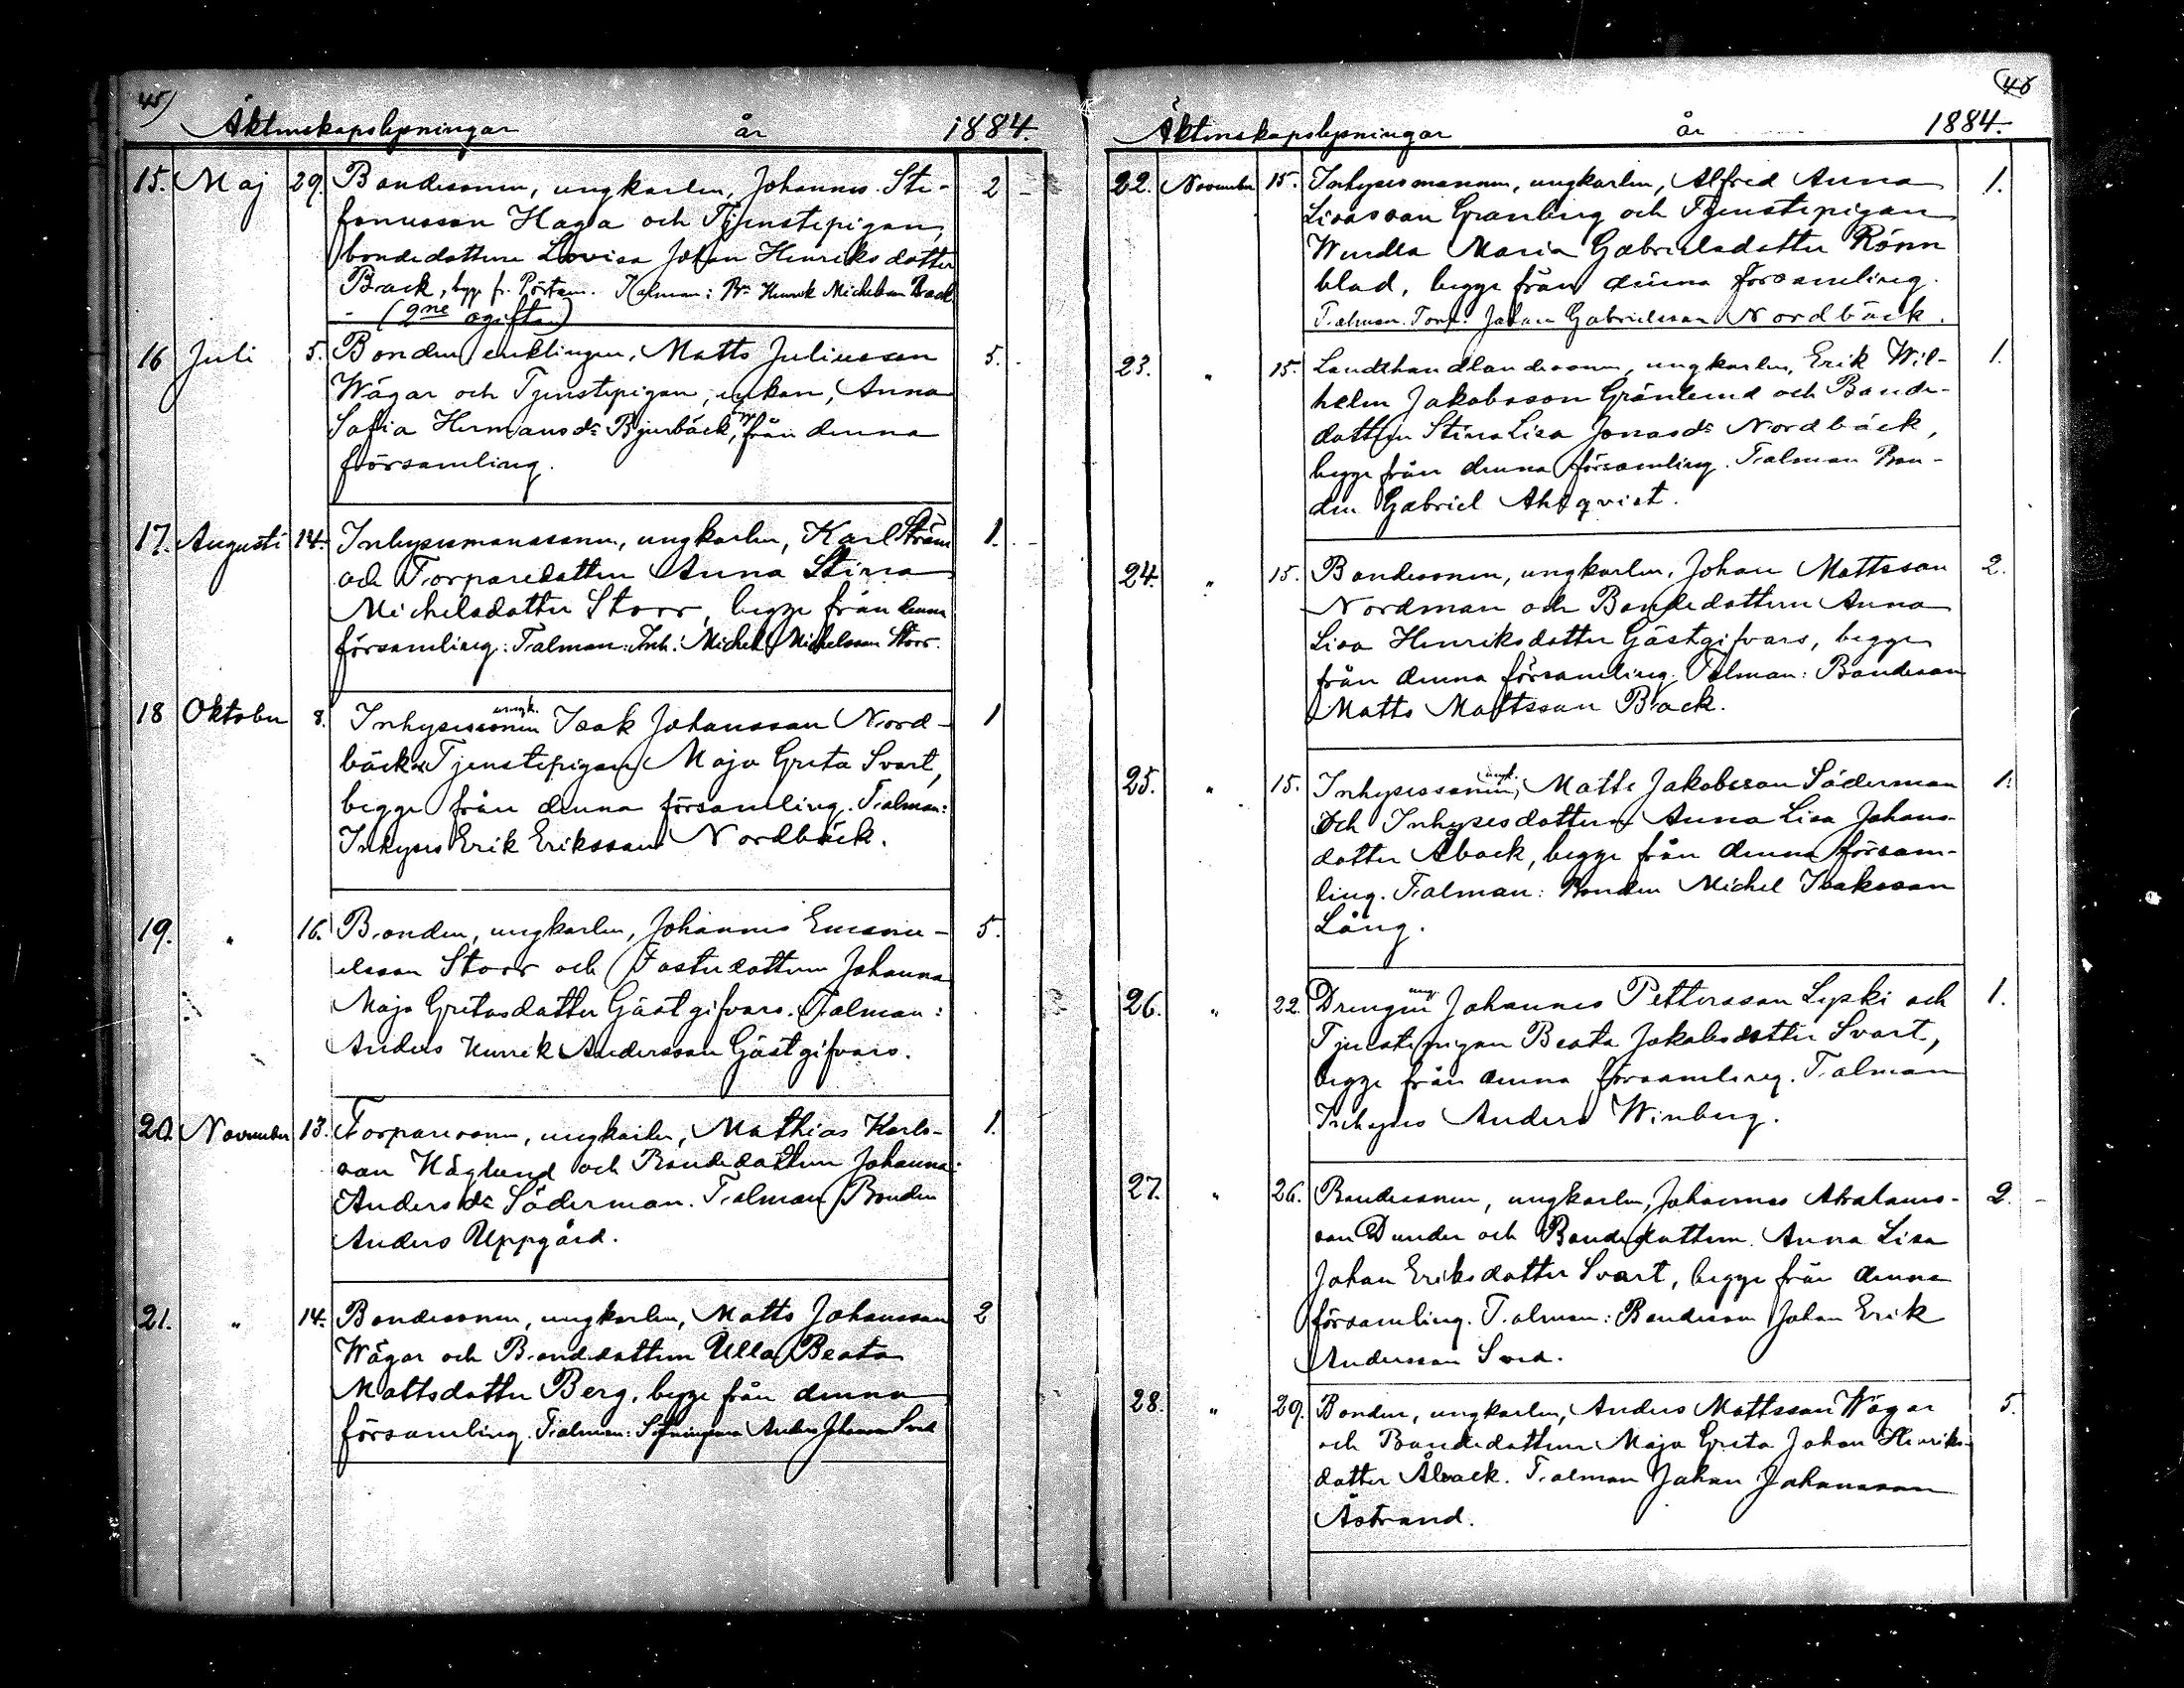 45)
Äktenskapslysningar år 1884.
15. Maj 29. Bondesonen, ungkarlen, Johannes Ste- 2 -
fanusson Haga och Tjenstepigan,
bondedottren Lovisa Johan Henriks dotter
Back, begge fr. Pörtom. Talman: Bn Henrik Michelsson Back
- (2ne ogifta)
16 Juli 5. Bonden, enklingen, Matts Juliusson 5.
Wägar och Tjenstepigan, enkan, Anna
Sofia Hermans dr Bjurbäck, från denna
församling.
17. Augusti 14. Inhysesmanssonen, ungkarlen, Karl Ström 1. -
och Torparedottren Anna Stina
Michelsdotter Storr, begge från denna
församling: Talman: Inh: Michel Michelsson Storr.
18 Oktober 8. Inhysessonen ungk. Isak Johansson Nord- 1
bäck o Tjenstepigan Maja Greta Svart,
begge från denna församling. Talman:
Inhyses Erik Eriksson Nordbäck.
19. " 16. Bonden, ungkarlen, Johannes Emanu- 5.
elsson Storr och Fosterdottren Johanna
Maja Gretasdotter Gästgifvars. Talman:
Anders Henrik Andersson Gästgifvars.
20. November 13. Torparesonen, ungkarlen, Mathias Karls- 1.
son Höglund och Bondedottren Johanna
Anders dr Söderman. Talman Bonden
Anders Uppgård.
21. " 14. Bondesonen, ungkarlen, Matts Johansson 2
Wägar och Bondedottren Ulla Beata
Mattsdotter Berg, begge från denna
församling. Talman: Anders Johansson
46
Äktenskapslysningar år 1884.
22. November 15. Inhysesmannen, ungkarlen, Alfred Anna 1.
Lisasson Granberg och Tjenstepigan
Wendla Maria Gabrielsdotter Rönn
blad, begge från denna församling.
Talman. Torp: Johan Gabrielsson Nordbäck.
23. " 15. Landthandlandesonen, ungkarlen, Erik Wil- 1.
helm Jakobsson Grönlund och Bonde-
dottren Stina Lisa Jonas dr Nordbäck,
begge från denna församling. Talman Bon-
den Gabriel Ahlqvist.
24. " 15. Bondesonen, ungkarlen, Johan Mattsson 2.
Nordman och Bondedottren Anna
Lisa Henriksdotter Gästgifvars, begge
från denna församling. Talman: Bondeson
Matts Mattsson Back.
25. " 15. Inhysessonen, ungk. Matts Jakobsson Söderman 1.
och Inhysesdottren Anna Lisa Johans-
dotter Åback, begge från denna försam-
ling. Talman: Bonden Michel Isaksson
Lång.
26. " 22. Drengen ung. Johannes Pettersson Lepki och 1.
Tjenstepigan Beata Jakobsdotter Svart,
begge från denna församling. Talman
Inhyses Anders Winberg.
27. " 26. Bondesonen, ungkarlen, Johannes Abrahams- 2. -
son Dunder och Bondedottren Anna Lisa
Johan Eriksdotter Svart, begge från denna
församling. Talman: Bondeson Johan Erik
Andersson Svea.
28. " 29. Bonden, ungkarlen, Anders Mattsson Wägar 5.
och Bondedottren Maja Greta Johan Henriks-
dotter Åback. Talman Johan Johansson
Åstrand.